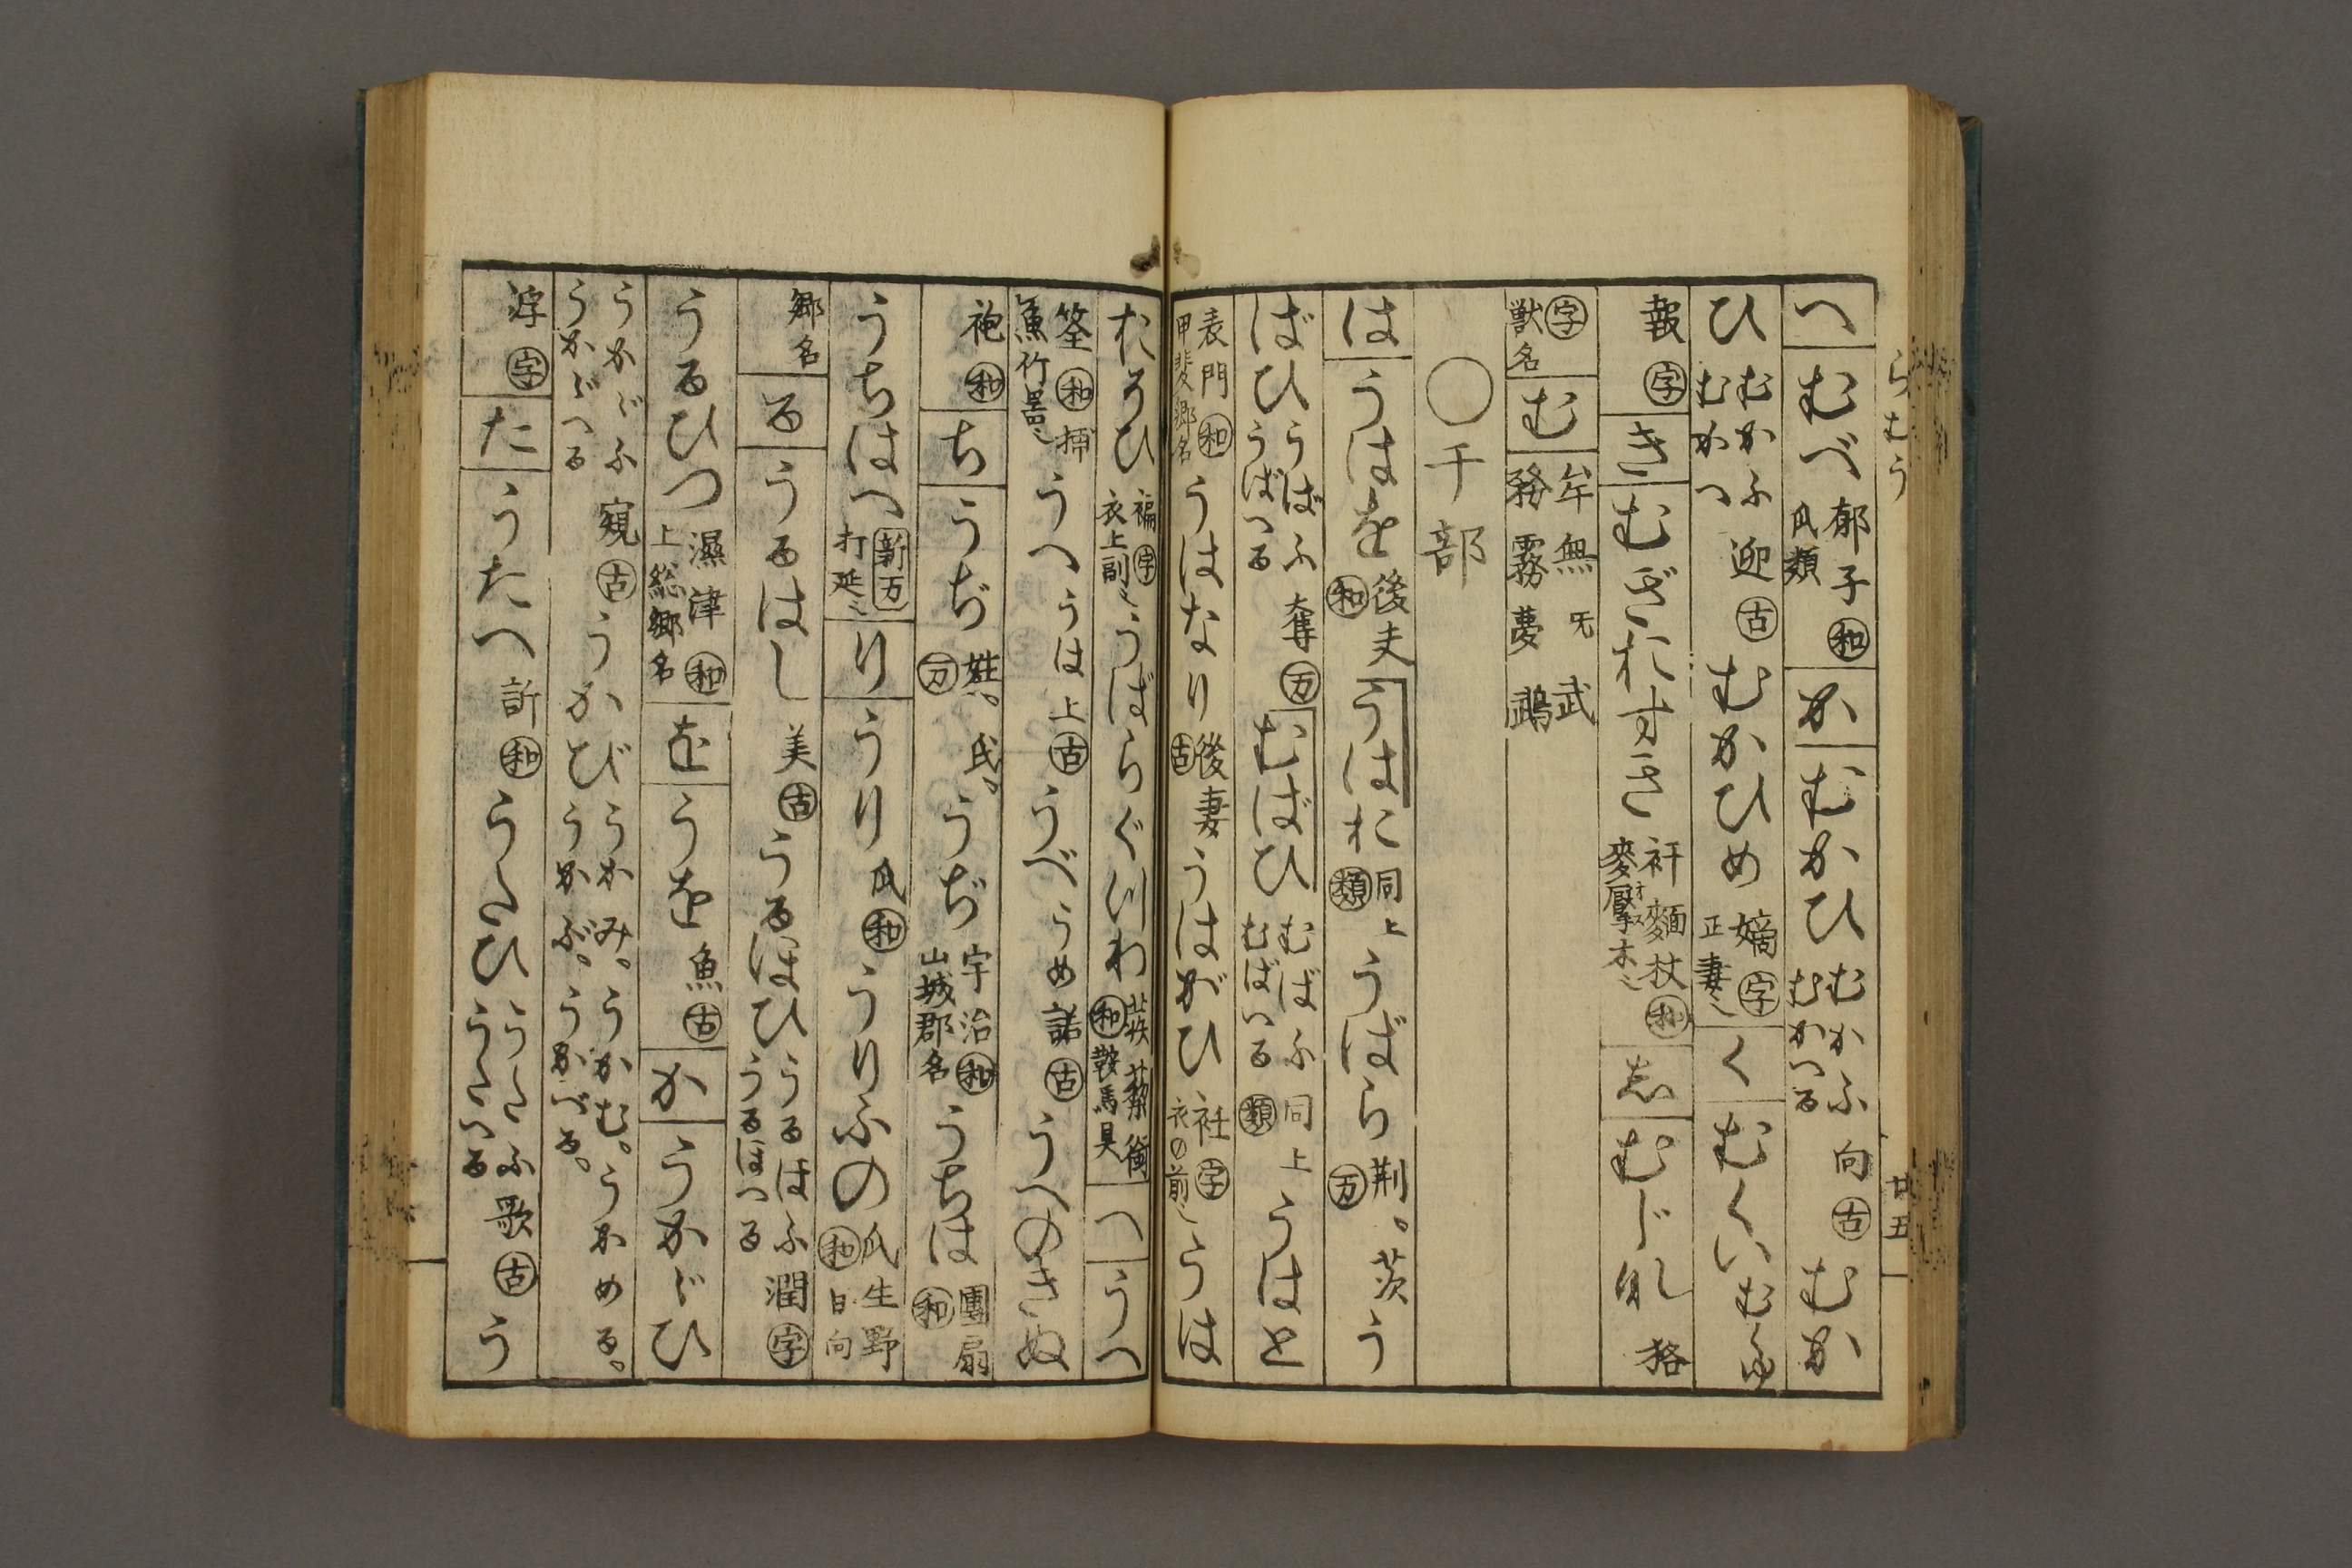 らむう
廿五
へ むべ 郁子 瓜類 和 か むかひ むかふ むかへる 向 古 むか
ひ むかふ むかへ 迎 古 むかひめ 嫡 字 正妻ミ く むくい むくふ
報 字 き むぎおすき 麥壓木ミ 麺杖 和 し むじな 狢
字 獣名 む 牟 無 武 務 霧 夢 鵡
〇于部
は うはを 後夫 和 うはお 同上 類 うばら 荊。茨 万 う
ばひ うばふ うばへる 奪 万 むばひ むばふ むばへる 同上 類 うはと
表門 和 甲斐郷名 うはなり 後妻 古 うはがひ 衽 字 衣の前ミ うは
おそひ 褊 字 衣上副ミ うばらぐつわ 蒺藜銜 和 鞍馬具 へ うへ
筌 和 捕魚竹器ミ うへ うは 上 古 うべ うめ 諾 古 うへのきぬ
袍 和 ち うぢ 姓。氏。 万 うぢ 宇治 和 山城郡名 うちは 團扇 和
うちはへ 新万 打延ミ り うり 瓜 和 うりふの 瓜生野 和 日向
郷名 る うるはし 美 古 うるほひ うるほふ うるほへる 潤 字
うるひつ 濕津 和 上総郷名 を うを 魚 古 か うかゞひ
うかゞふ うかゞへる 窺 古 うかび うかみ。うかむ。うかめる。 うかぶ。うかべる。
浮 字 た うたへ 訴 和 うたひ うたふ うたへる 歌 古 う